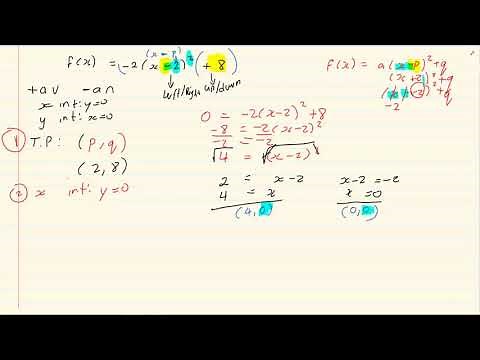 (x - p)
f(x) = -2(x - 2)² (+ 8)
left/right up/down
f(x) = a(x - p)² + q
(x + 2)² + q
-2)² + q
-2
+a ∪ -a ∩
x int: y = 0
y int: x = 0
① T.P: (p, q)
(2, 8)
② x int: y = 0
0 = -2(x - 2)² + 8
-8 = -2(x - 2)²
-2 = -2
√4 = √(x - 2)²
2 = x - 2
4 = x
(4, 0)
x - 2 = -2
x = 0
(0, 0)